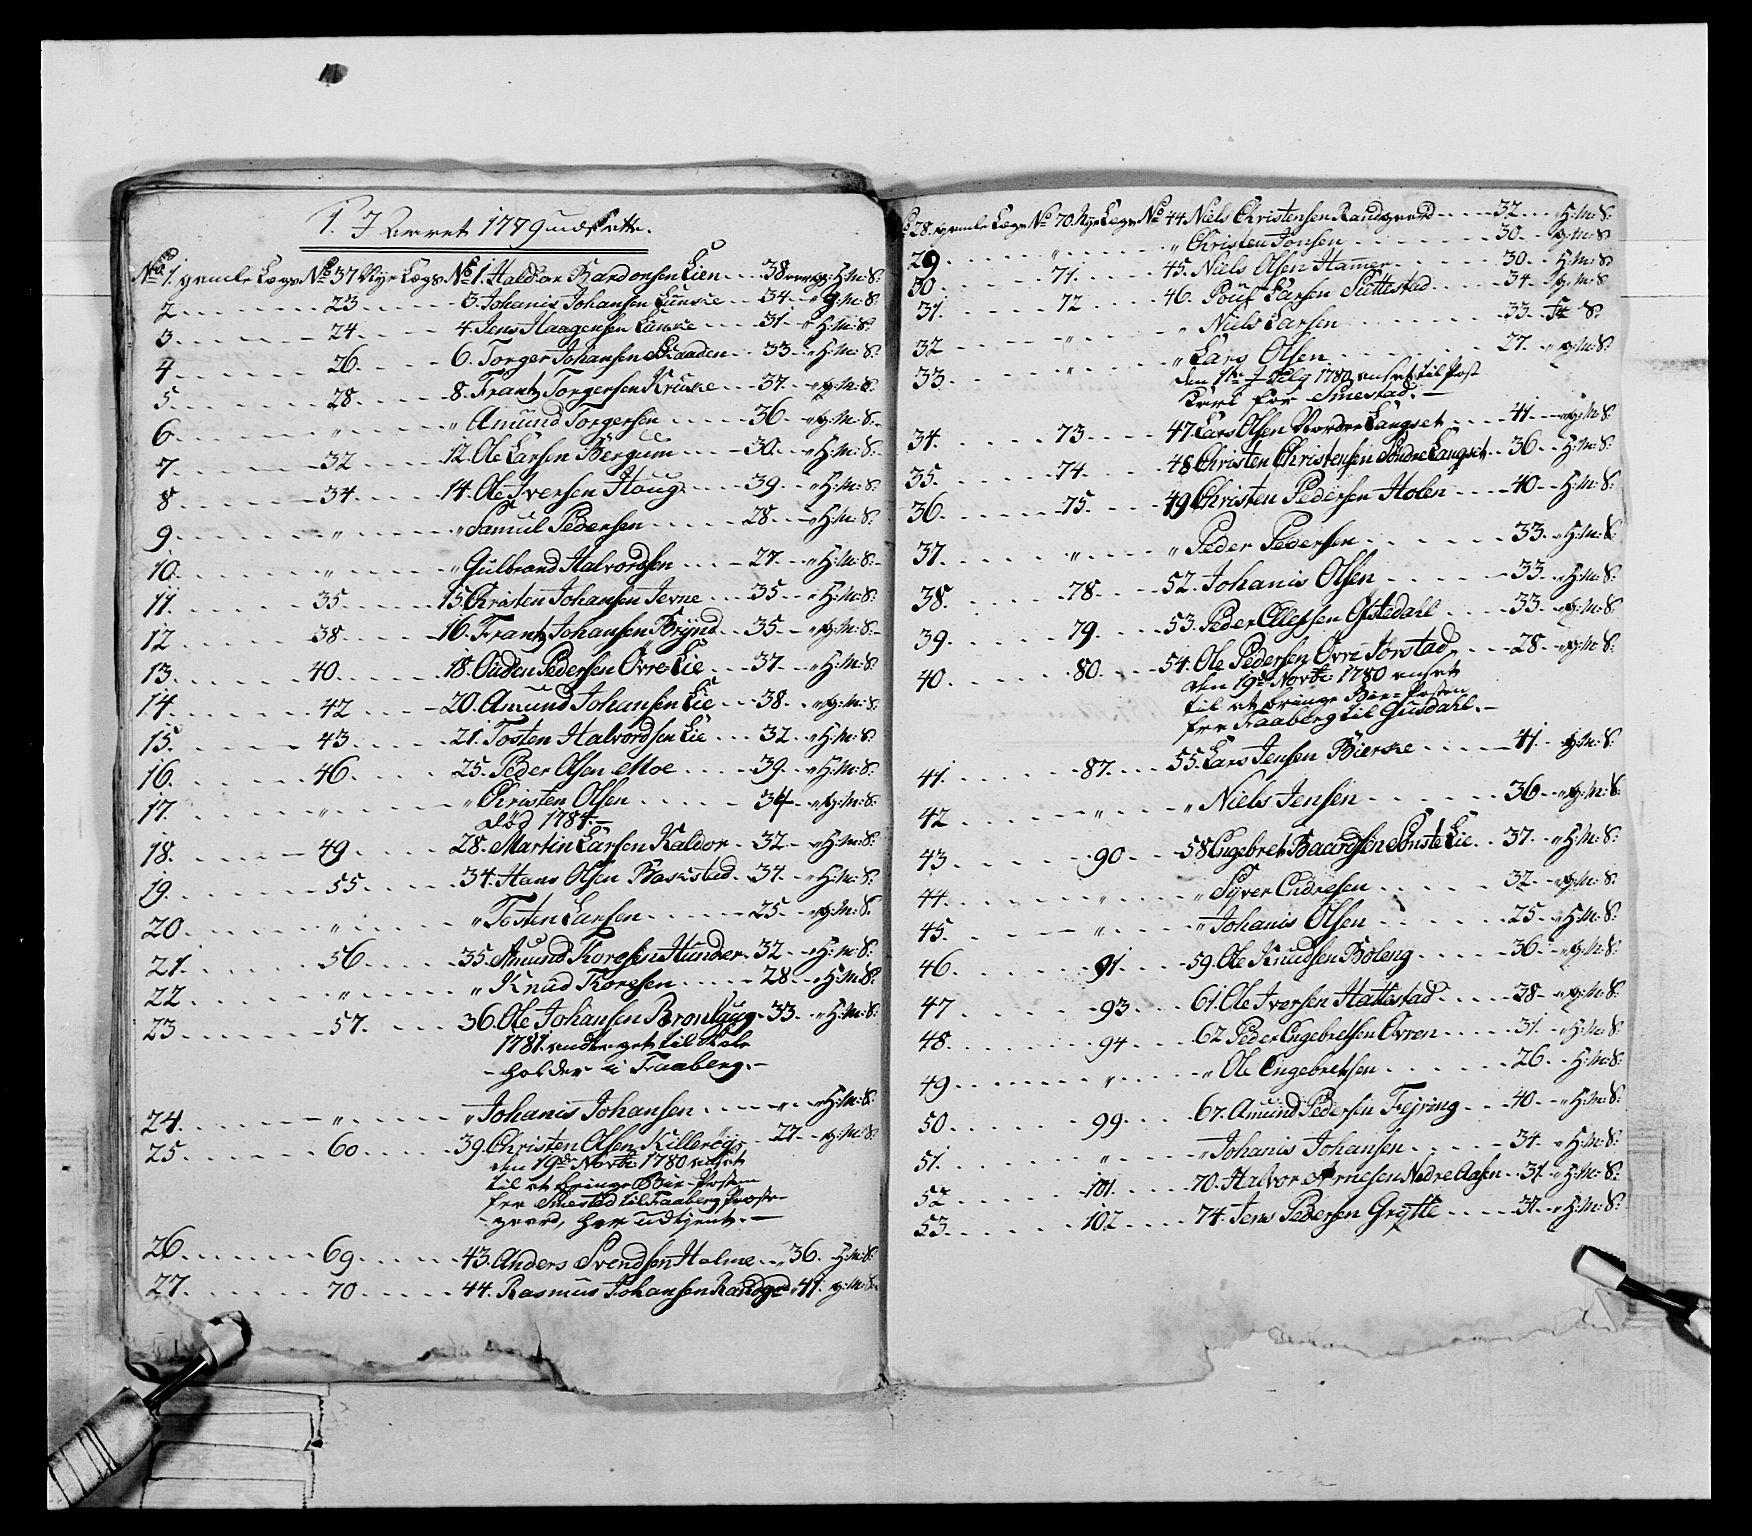 1. I Aaret 1779 udsatte.
No 1. gamle Lægs No 37 Nye Lægs No 1. Haldor Bardonsen Lien 38 aar H: M: S:
2 23 3. Johanis Johansen Lunke 34 " g: M: S:
3 24 4. Jens Haagensen Lunke 31 " H: M: S:
4 26 6. Torger Johansen Braaden 33 " H: M: S:
5 28 8. Frantz Torgersen Kruke 37 " g: M: S:
6 " " Amund Torgersen 36 " g: M: S:
7 32 12. Ole Larsen Bergum 30 " H: M: S:
8 34 14. Ole Iversen Houg 39 " H: M: S:
9 " " Samuel Pedersen 28 " H: M: S:
10 " " Gulbrand Halvordsen 27 " H: M: S:
11. 35 15. Christen Johansen Jevne 35 " H: M: S:
12 38 16. Frantz Johansen Brynd 35 " g: M: S:
13. 40 18. Ouden Pedersen Øvre Lie 37 " H: M: S:
14. 42 20. Amund Johansen Lie 38 " g: M: S:
15. 43 21. Tosten Halvordsen Lie 32 " H: M: S:
16. 46 25. Peder Olsen Moe 39 " H: M: S:
17. " " Christen Olsen 34 " g: M: S:
død 1784.
18. 49 28. Martin Larsen Kaldor 32 " H: M: S:
19. 55 34. Hans Olsen Bakstad 34 " H: M: S:
20 " " Tosten Larsen 25 " g: M: S:
21. 56 35. Amund Koresen Hunder 32 " H: M: S:
22 " " Knud Koresen 28 " H: M: S:
23 57. 36. Ole Johansen Bronlaug 33 " H: M: S:
1781. antaget til Skole
holder i Faaberg.
24. " " Johanis Johansen " " H: M: S:
25 60 39. Christen Olsen Killerøje 27 " g: M: S:
den 19de Novbr 1780 ansat
til at bringe Bie-Posten
fra Smestad til Faaberg Præste
gaard, har udtjent.
26 69 43. Anders Svendsen Holme 36 H: M: S:
27. 70 44. Rasmus Johansen Randgd 41. g: M: S:
No 28. gamle Lægs No 70. Nye Lægs No 44. Niels Christensen Randgaard 32 H: M: S:
29 " " Christen Jonsen 30 g: M: S:
30 71. 45. Niels Olsen Hamer 30 H: M: S:
31. 72 46. Pouf Larsen Suttestad 34 g: M: S:
32 " " Niels Larsen 33 S:
33. " " Lars Olsen 27 " g: M: S:
1780 ansat til Post
Karl for Smestad.
34. 73 47. Lars Olsen Nordre Langset 41 " g: M: S:
35. 74 48. Christen Christensen Søndre Langset 36 H: M: S:
36. 75. 49. Christen Pedersen Holen 40 H: M: S:
37. " " Peder Pedersen 33 " H: M: S:
38. 78 52. Johanis Olsen 33 " H: M: S:
39. 79. 53. Peder Ellefsen Ofstedahl 33 " g: M: S:
40 80 54. Ole Pedersen Øvre Jørstad 28 " g: M: S:
den 19de Novbr 1780 ansat
til at bringe Bie-Posten
fra Faaberg til Gusdahl.
41. 87. 55. Lars Jensen Bierke 41 g: M: S:
42 " " Niels Jensen 36 " g: M: S:
43 90 58. Engebret Baardsen Sønste Lie 37 " H: M: S:
44. " " Syver Endresen 32 " g: M: S:
45. " " Johanis Olsen 25 " H: M: S:
46 91 59. Ole Knudsen Boleng 36 " g: M: S:
47 93 61. Ole Iversen Hattestad 38 " g: M: S:
48. 94 62. Peder Engebretsen Øvren 31 " H: M: S:
49 " " Ole Engebretsen 26 H: M: S:
50 99 67. Amund Pedersen Fejring 40 " H: M: S:
51. " " Johanis Johansen 34 " H: M: S:
52 101 70. Halvor Arnesen Nedre Aasen 31 " H: M: S:
53 102 74. Jens Pedersen Grytte 31 " H: M: S: